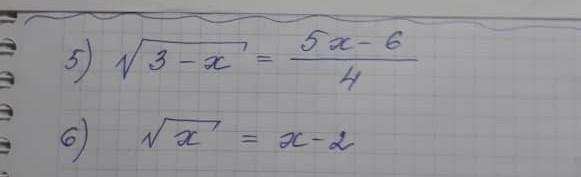 5) √(3 - x) = (5x - 6)/4
6) √x = x - 2